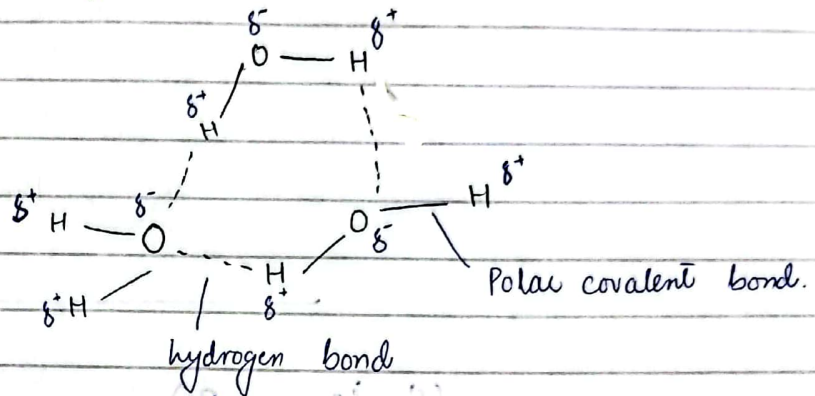 δ⁻ δ⁺
O H
δ⁺
H
δ⁺ H δ⁻ O
O δ⁻ H δ⁺
δ⁺ H H δ⁺
Polar covalent bond.
hydrogen bond